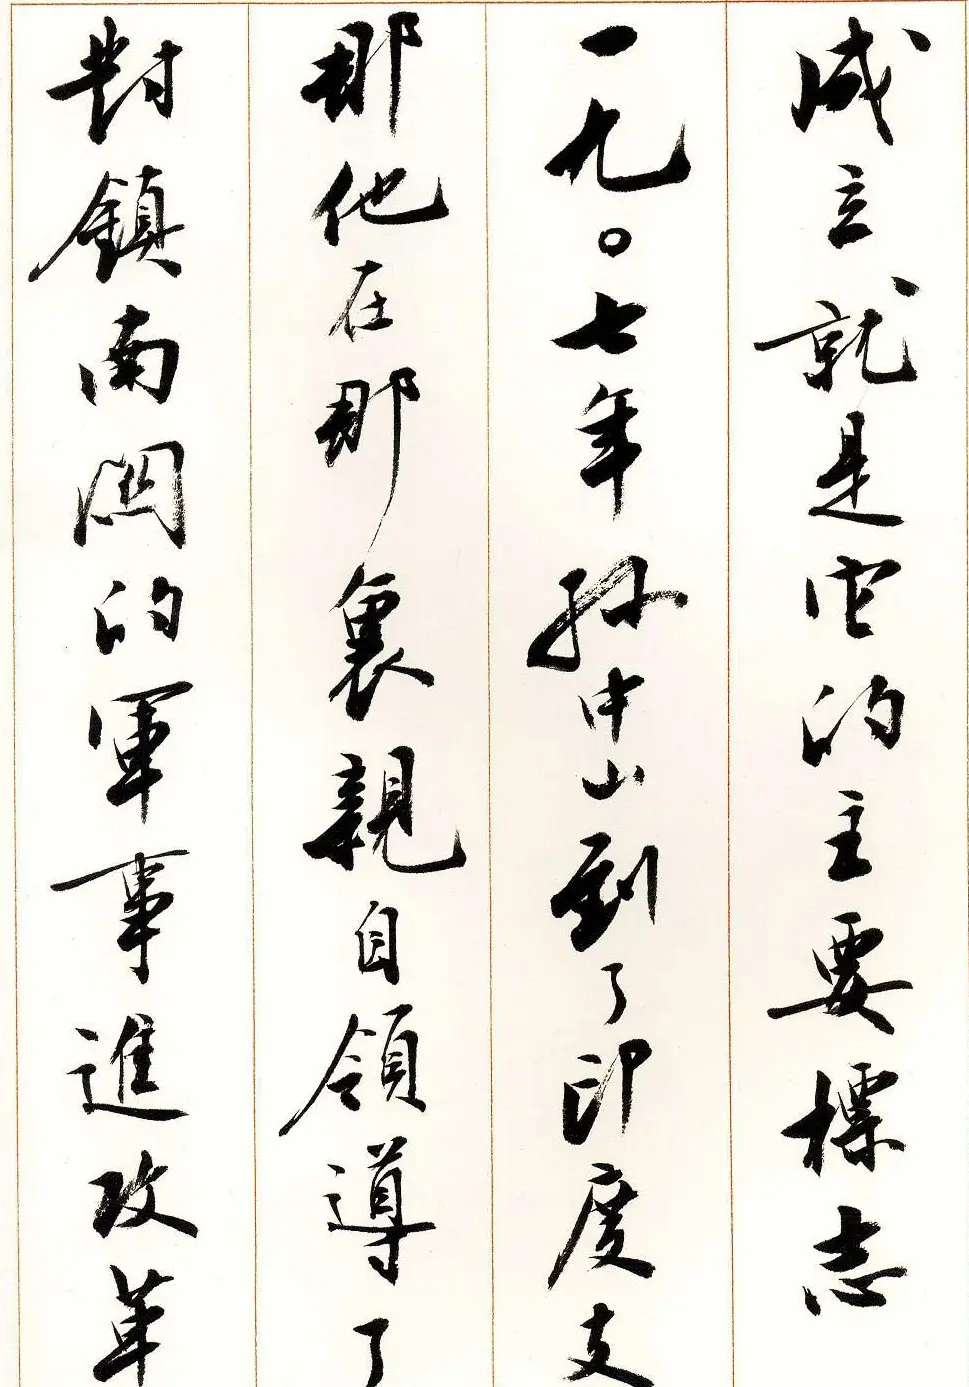 成立就是它的主要標志
一九〇七年孫中山到了印度支
那他在那裏親自領導了
對鎮南關的軍事進攻革